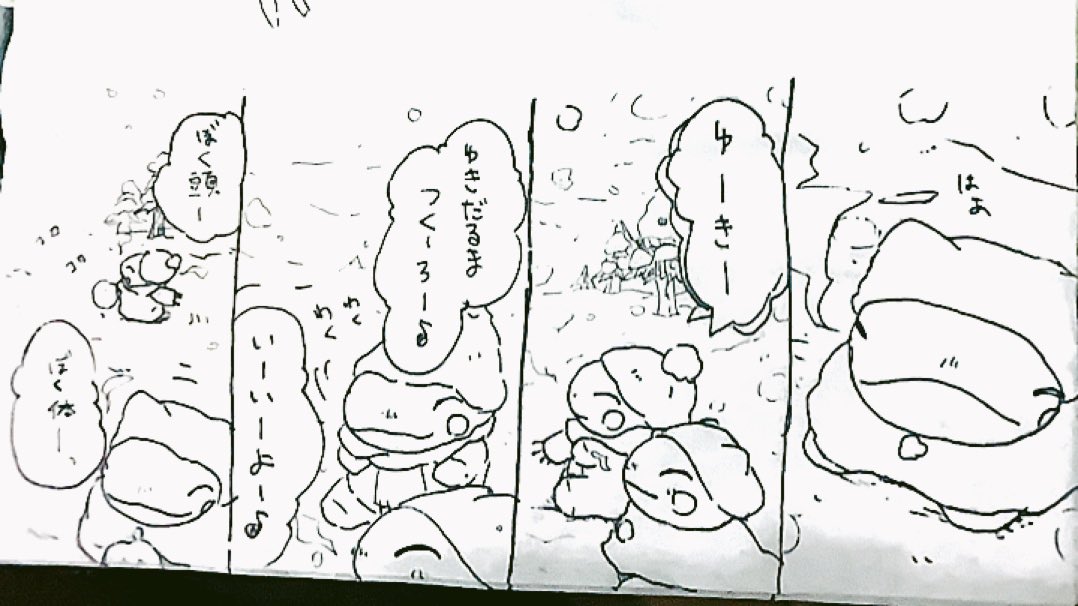 はぁ
ゆーきー
ゆきだるま
つくーろー♪
わく
わく
いーいーよー♪
ぼく頭ー
コロ
コロ
ぼく体ー、